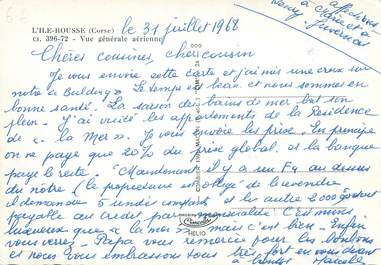 L'ILE-ROUSSE (Corse)
CI. 396-72 - Vue générale aérienne
le 31 juillet 1968
Chères cousines, cher cousin
Je vous envoie cette carte et j'ai mis une croix sur
notre « Bulding ». Le temps est beau et nous sommes en
bonne santé. La saison des bains de mer bat son
plein. J'ai visité les appartements de la Résidence
de « la Mer ». Je vous envoie les prix. En principe
on ne paye que 20% du prix global et la banque
paye le reste. Maintenant il y a un F4 au dessus
du nôtre (le propriétaire est obligé de le vendre
il demande 5 unités comptants et les autre 2000
payable au crédit par mensualité. C'est moins
luxueux que « la mer » mais c'est bien. Enfin
vous verrez. Papa vous remercie pour les bonbons
et nous vous embrassons tous très fort en
HELIO